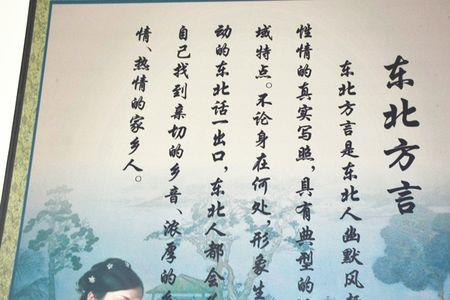 东北方言
东北方言是东北人幽默风
性情的真实写照，具有典型的
域特点。不论身在何处，形象生
动的东北话一出口，东北人都会
自己找到亲切的乡音、浓厚的
情、热情的家乡人。